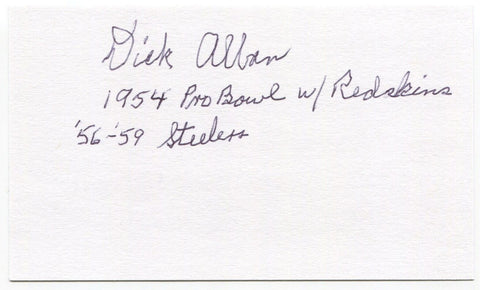 Dick Alban
1954 Pro Bowl w/ Redskins
'56-'59 Steelers